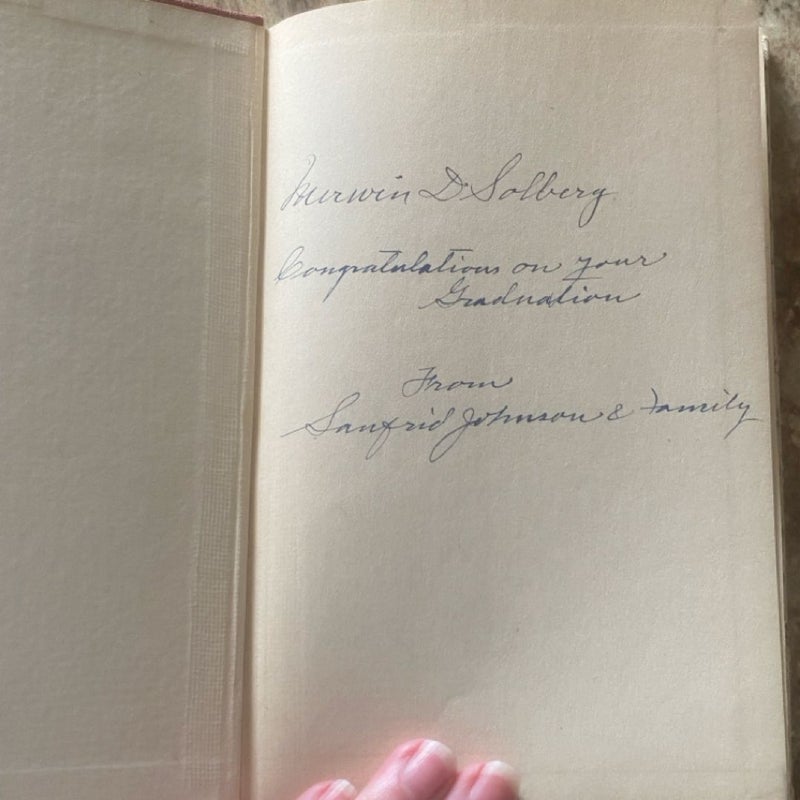 Merwin D. Solberg
Congratulations on your
Graduation
From
Sanfrid Johnson & Family